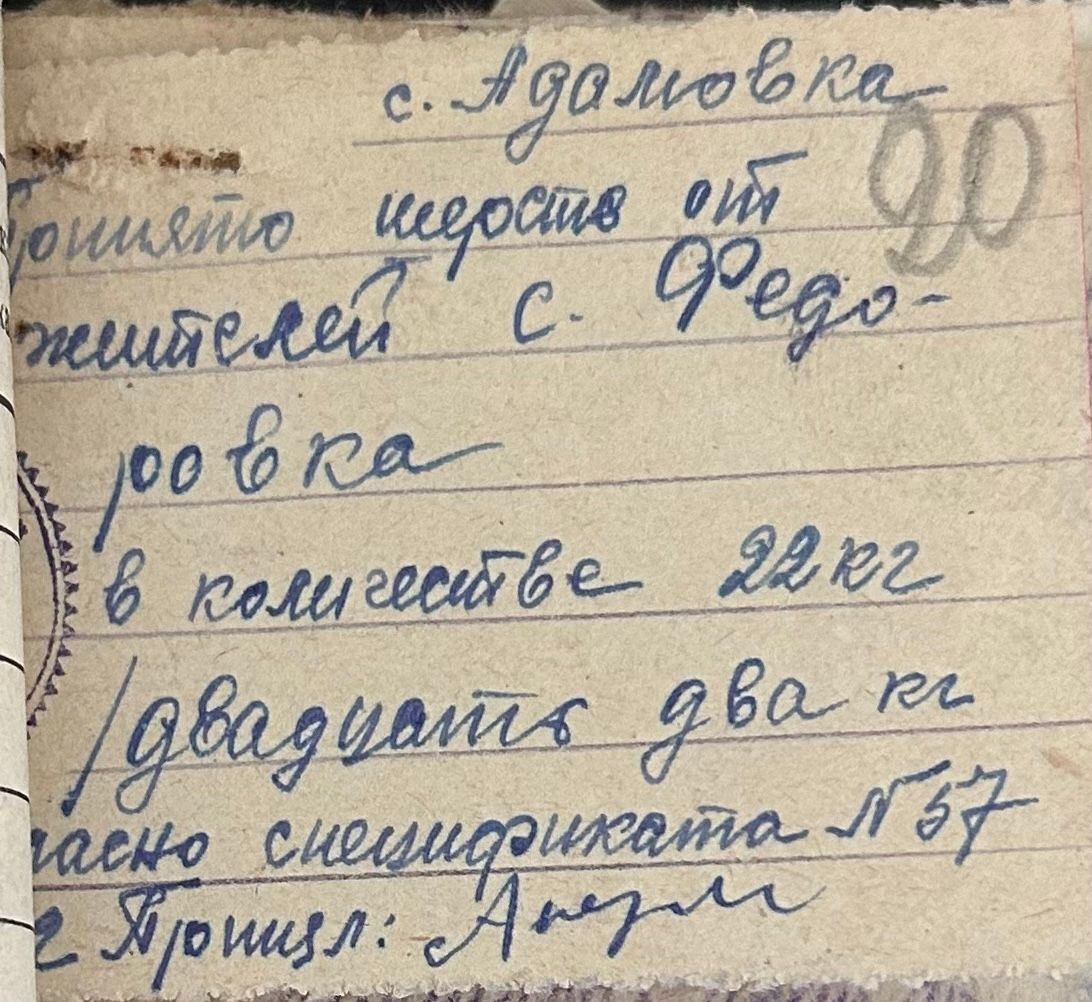 с. Адамовка
20
Принято шерств от
жителей с. Федо-
ровка
в количестве 22 кг
/двадцать два кг
ласно спецификата №57
Принял: